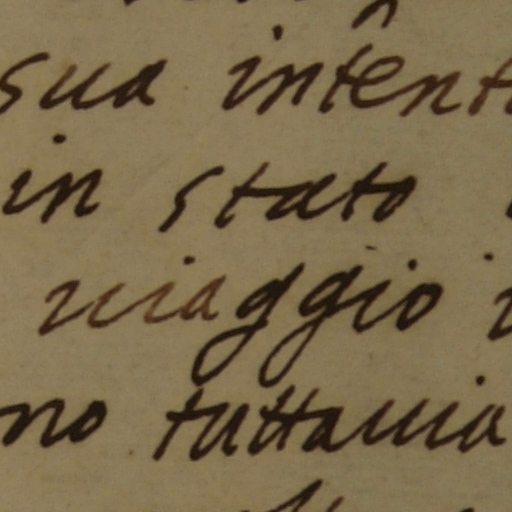 sua intent
in stato
uiaggio i
no tuttauia